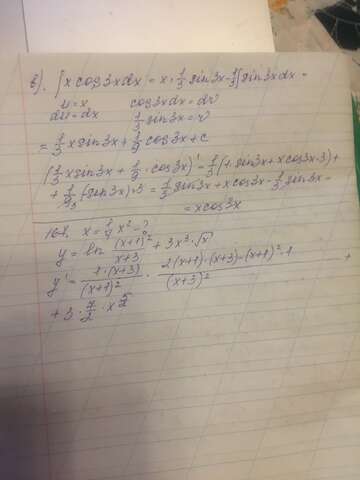 в). ∫x cos3x dx = x·1/3 sin3x - 1/3∫sin3x dx =
u = x cos3x dx = dv
du = dx 1/3 sin3x = v
= 1/3 x sin3x + 1/9 cos3x + c
(1/3 x sin3x + 1/9 · cos3x)' = 1/3(1·sin3x + x cos3x·3) +
+ 1/9 (sin3x)·3 = 1/3 sin3x + x cos3x - 1/3 sin3x =
= x cos3x
x = 1/4 x² - ?
y = ln (x+1)²/(x+3) + 3x³·√x
y' = 1·(x+3)/(x+1)² · (2(x+1)·(x+3) - (x+1)²·1)/(x+3)² +
+ 3·7/2·x^5/2